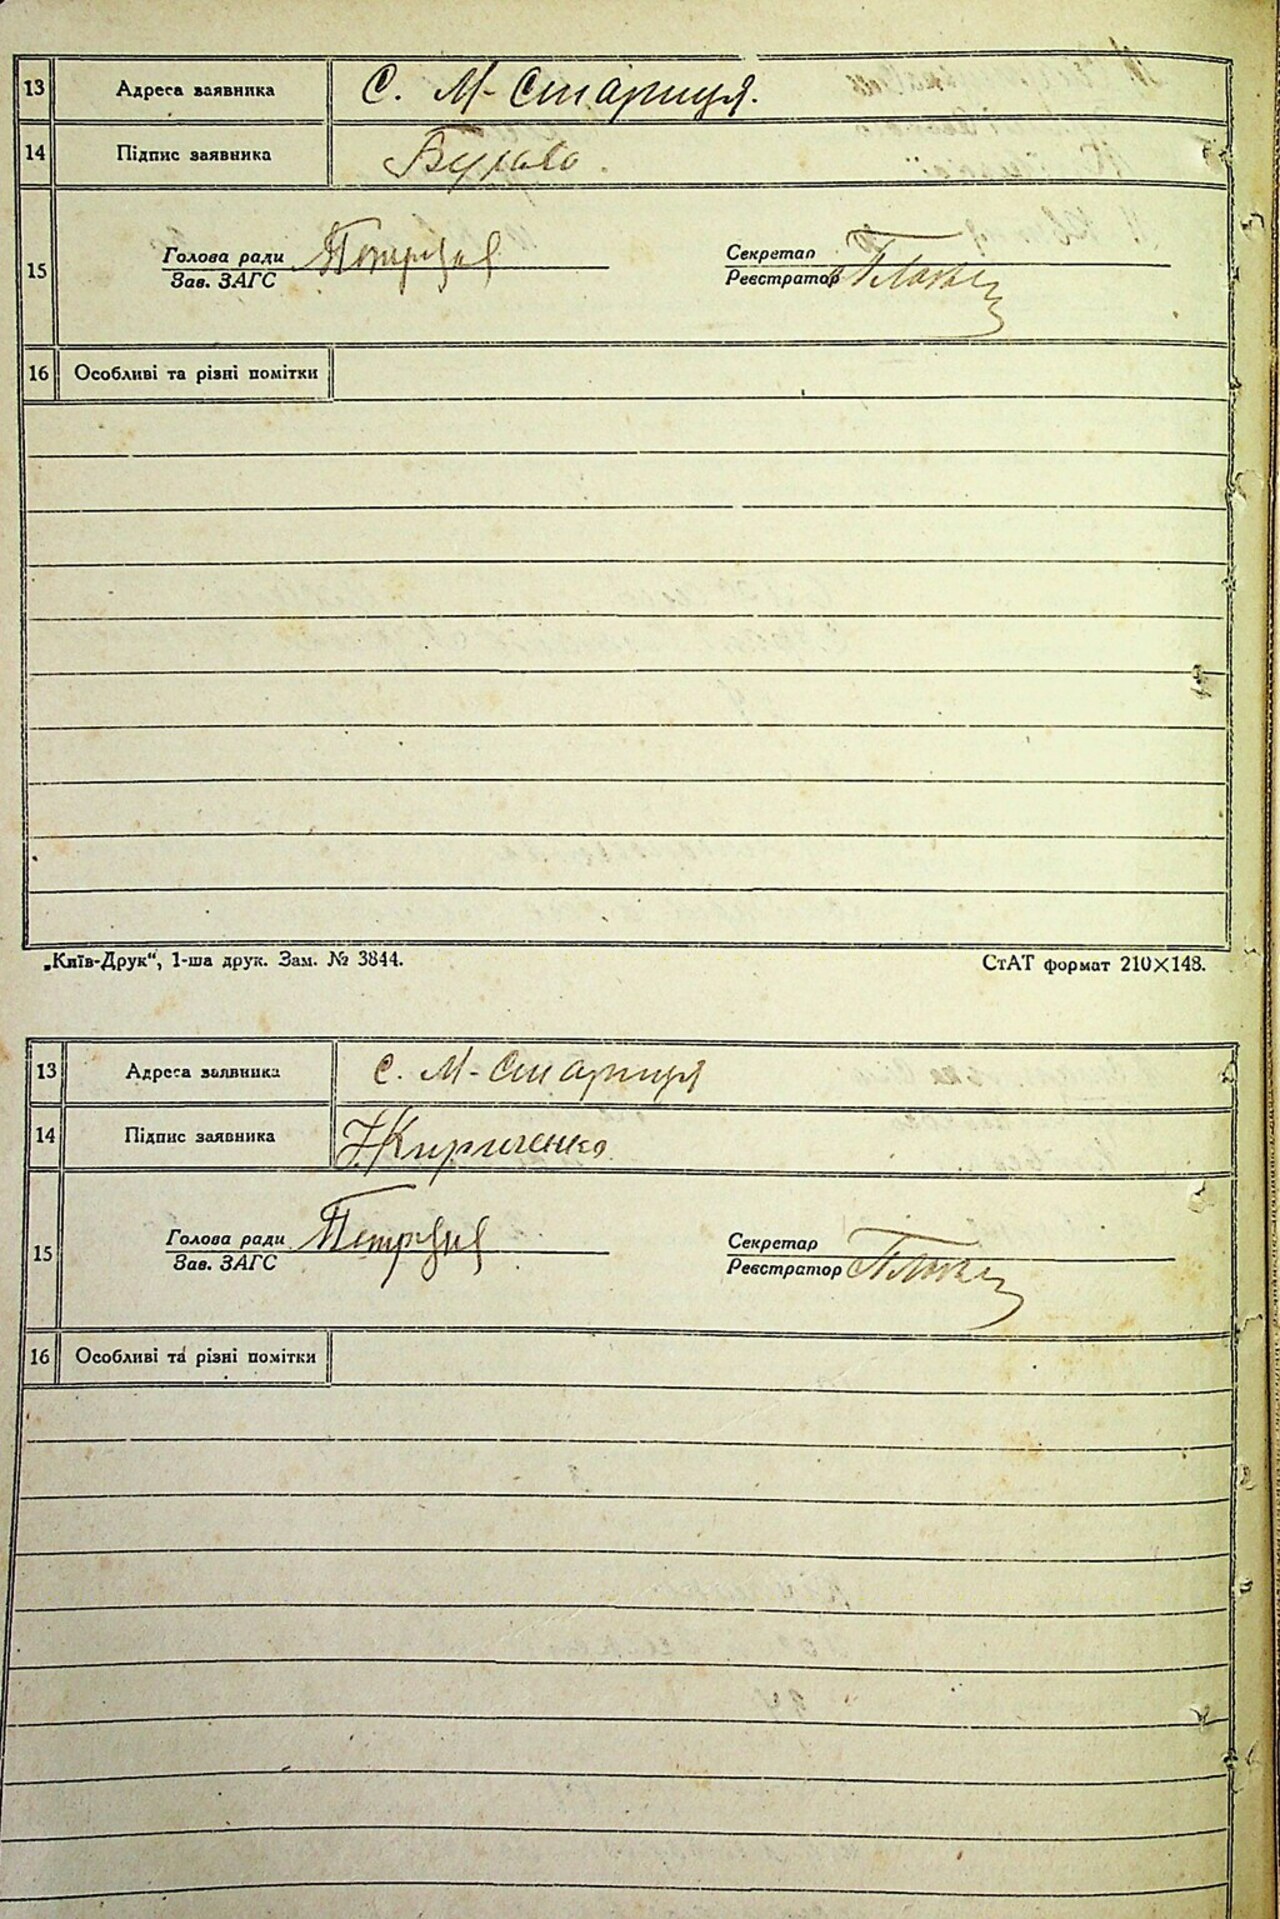 13 Адреса заявника С. М-Стариця.
14 Підпис заявника
15 Голова ради Секретар
Зав. ЗАГС Реєстратор
16 Особливі та різні помітки
„Київ-Друк“, 1-ша друк. Зам. № 3844. СтАТ формат 210×148.
13 Адреса заявника с. М-Стариця
14 Підпис заявника Кириченко
15 Голова ради Секретар
Зав. ЗАГС Реєстратор
16 Особливі та різні помітки